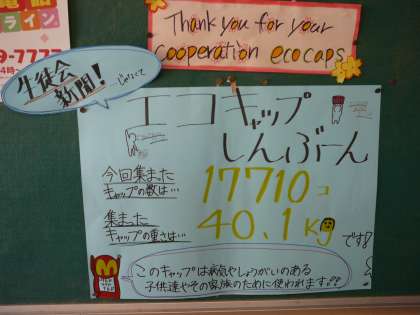 Thank you for your
cooperation ecocaps
ライン
9-7777
生徒会
新聞!
…じゃなくて
エコキャップ
しんぶーん
今回集まった
キャップの数は…
17710コ
集まった
キャップの重さは…
40.1kg
です!
このキャップは病気やしょうがいのある
子供達やその家族のために使われます!!